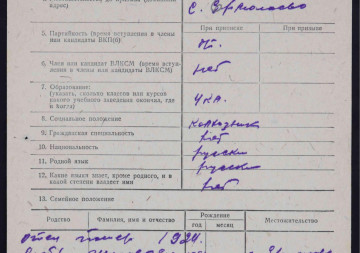 адрес)
с. Ермолаево
5. Партийность (время вступления в члены или кандидаты ВКП(б)
При призыве
При призыве
6. Член или кандидат ВЛКСМ (время вступления в члены или кандидаты ВЛКСМ)
нет
7. Образование:
(указать, сколько классов или курсов какого учебного заведения окончил, где и когда)
4 кл.
8. Социальное положение
колхозник
9. Гражданская специальность
нет
10. Национальность
русский
11. Родной язык
русский
12. Какие языки знает, кроме родного, и в какой степени владеет ими
нет
13. Семейное положение
Родство
Фамилия, имя и отчество
Рождение
год
месяц
Местожительство
отец